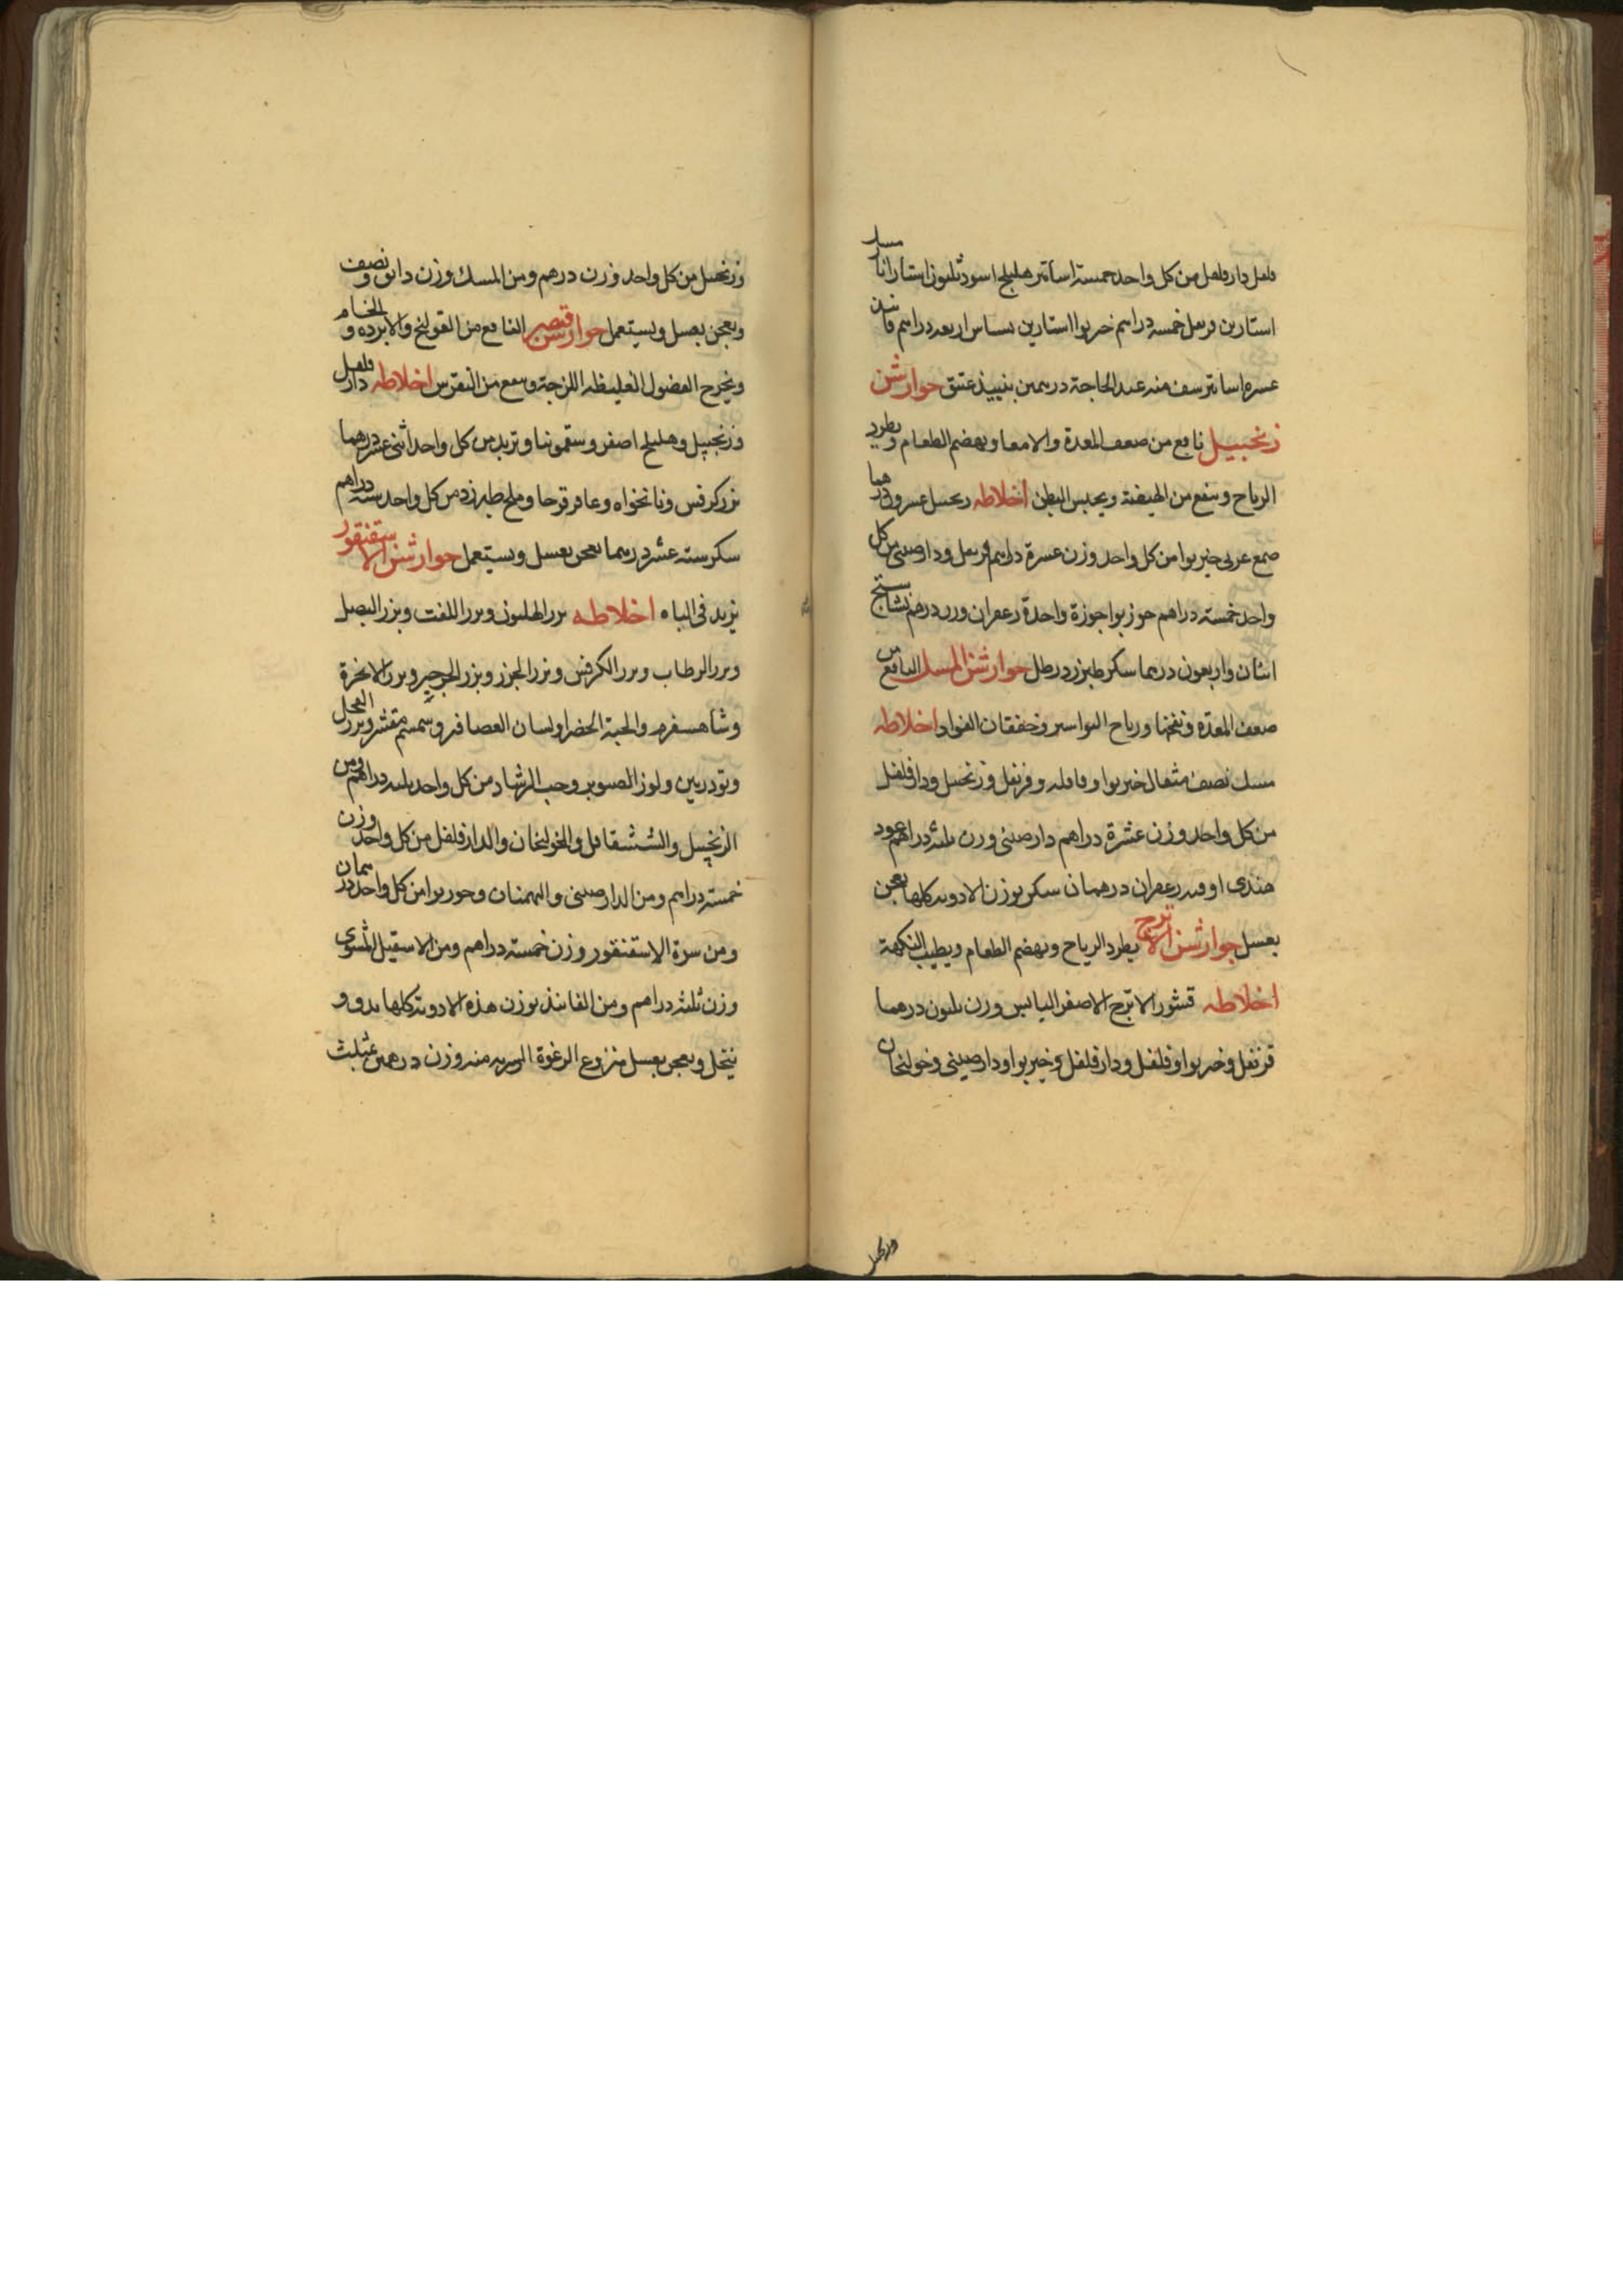 فلفل دار فلفل من كل واحد خمسة اساتير هليلج اسود ثلثون استارا نار
استارين قرنفل خمسه دراهم خير بوا استارين بسباس اربعه دراهم فانيد
عشره اساتير يسف منه عند الحاجة درهمين بنبيذ عتيق جوارشن
زنجبيل نافع من ضعف المعدة والامعا ويهضم الطعام ويطرد
الرياح وينفع من الهيضة ويحبس البطن اخلاطه زنجبيل عشرون درهما
صمغ عربى خير بوا من كل واحد وزن عشرة دراهم قرنفل ودارصينى من كل
واحد خمسة دراهم جوز بوا جوزة واحدة زعفران وزن درهم نشاستج
اثنان واربعون درهما سكر طبرزد رطل جوارشن المسك النافع من
ضعف المعدة ونفخها ورياح البواسير وخفقان الفواد اخلاطه
مسك نصف مثقال خير بوا وقاقله وقرنفل وزنجبيل ودار فلفل
من كل واحد وزن عشرة دراهم دارصينى وزن ثلثه دراهم عود
هندى اوقيه زعفران درهمان سكر بوزن الادويه كلها يعجن
بعسل جوارشن الاترج يطرد الرياح ويهضم الطعام ويطيب النكهة
اخلاطه قشور الاترج الاصفر اليابس وزن ثلثون درهما
قرنفل وخير بوا وفلفل ودار فلفل وخير بوا ودارصينى وخولنجان
وزنجبيل
وزنجبيل من كل واحد وزن درهم ومن المسك وزن دانق ونصف
ويعجن بعسل ويستعمل جوارشن قيصر النافع من القولنج والابرده والخام
ويخرج الفضول الغليظه اللزجة وينفع من النقرس اخلاطه دار فلفل
وزنجبيل وهليلج اصفر وسقمونيا وتربد من كل واحد اثنى عشر درهما
بزر كرفس ونانخواه وعاقرقرحا وملح طبرزد من كل واحد سته دراهم
سكر سته عشر درهما يعجن بعسل ويستعمل جوارشن الاستقنقور
يزيد فى الباه اخلاطه بزر الهليون وبزر اللفت وبزر البصل
وبزر الرطاب وبزر الكرفس وبزر الجزر وبزر الجرجير وبزر الانجرة
وشاهسفرم والحبة الخضرا ولسان العصافير وسمسم مقشر وبزر الفجل
وتودريين ولوز الصنوبر وحب الرشاد من كل واحد ثلثه دراهم ومن
الزنجبيل والششقاقل والخولنجان والدار فلفل من كل واحد وزن
خمسة دراهم ومن الدارصينى والبهمنان وجوز بوا من كل واحد درهمان
ومن سرة الاستقنقور وزن خمسة دراهم ومن الاسقيل المشوى
وزن ثلثه دراهم ومن الفانيذ بوزن هذه الادوية كلها يدق و
ينخل ويعجن بعسل منزوع الرغوة الشربه منه وزن درهمين بمثلث